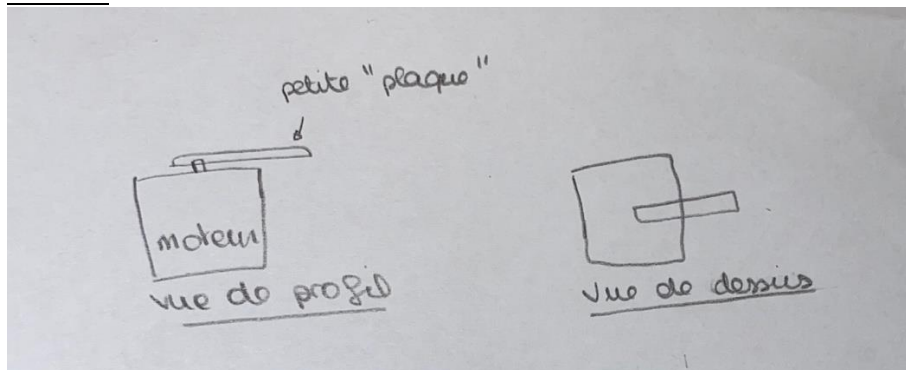 petite "plaque"
moteur
vue de profil
vue de dessus